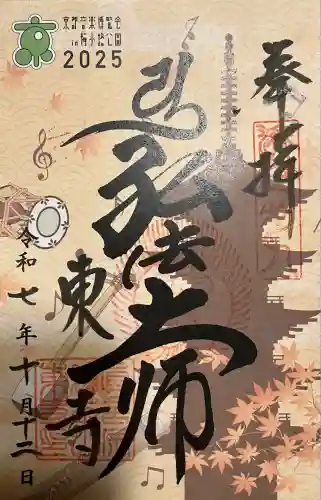 京都音楽博覧会
in 梅小路公園
2025
奉拝
弘法大師
東寺
令和七年十月十二日